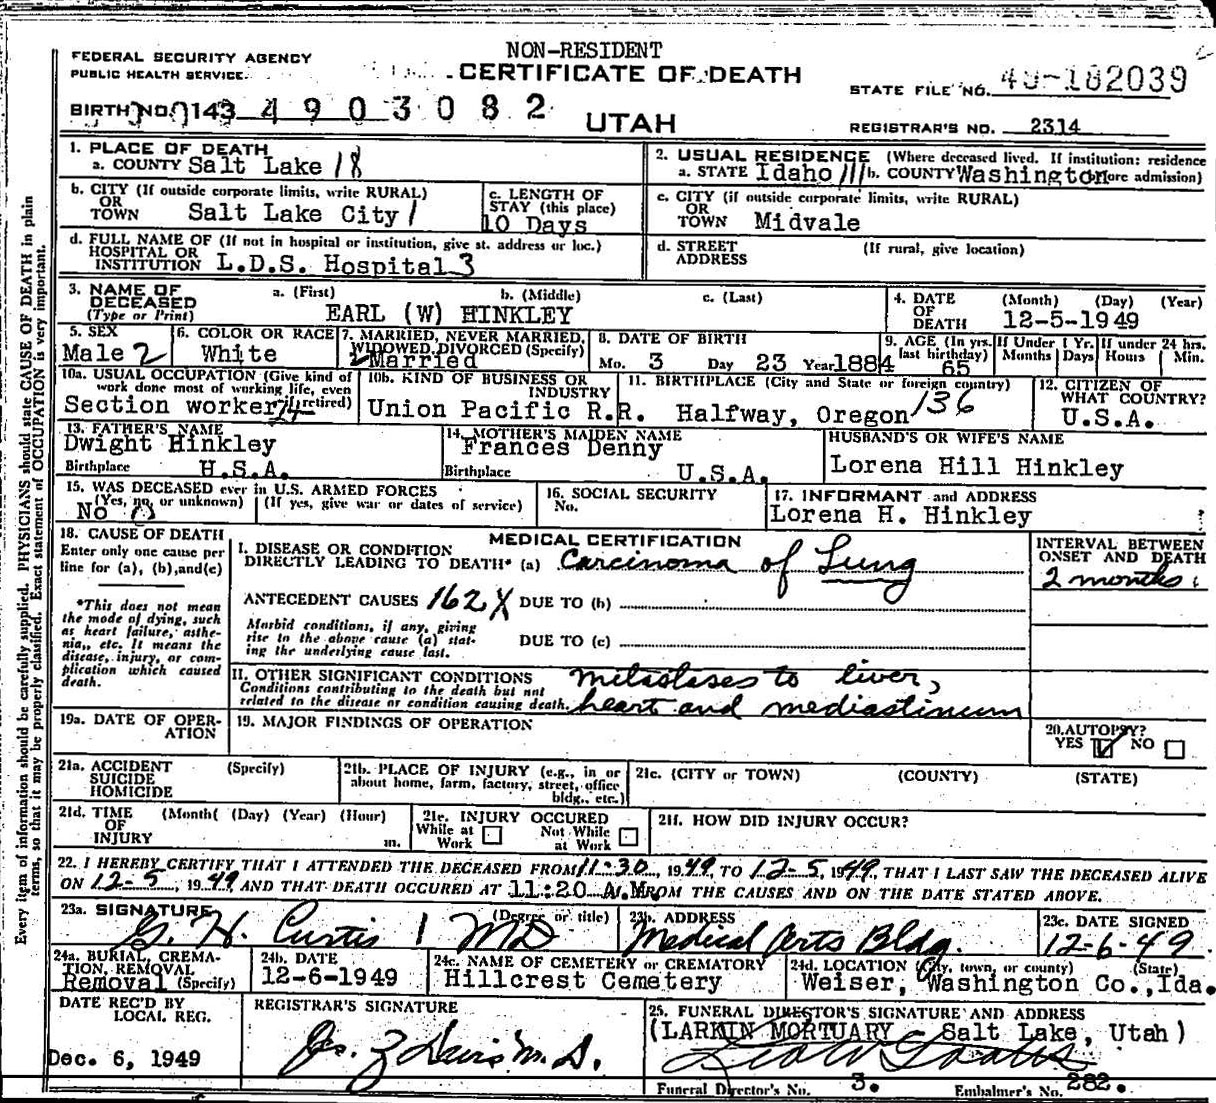 NON-RESIDENT
FEDERAL SECURITY AGENCY
PUBLIC HEALTH SERVICE.
CERTIFICATE OF DEATH
STATE FILE NO. 49-182039
BIRTH NO. 143 4903082
UTAH
REGISTRAR'S NO. 2314
1. PLACE OF DEATH
a. COUNTY Salt Lake 18
2. USUAL RESIDENCE (Where deceased lived. If institution: residence
a. STATE Idaho b. COUNTY Washington ore admission)
b. CITY (If outside corporate limits, write RURAL)
OR
TOWN Salt Lake City 1
c. LENGTH OF
STAY (this place)
10 Days
c. CITY (if outside corporate limits, write RURAL)
OR
TOWN Midvale
d. FULL NAME OF (If not in hospital or institution, give st. address or loc.)
HOSPITAL OR
INSTITUTION L.D.S. Hospital 3
d. STREET (If rural, give location)
ADDRESS
3. NAME OF a. (First) b. (Middle) c. (Last)
DECEASED
(Type or Print) EARL (W) HINKLEY
4. DATE (Month) (Day) (Year)
OF
DEATH 12-5-1949
5. SEX
Male 2
6. COLOR OR RACE
White
7. MARRIED, NEVER MARRIED,
WIDOWED, DIVORCED (Specify)
2 Married
8. DATE OF BIRTH
Mo. 3 Day 23 Year 1884
9. AGE (In yrs. If Under 1 Yr. If under 24 hrs.
last birthday) Months Days Hours Min.
65
10a. USUAL OCCUPATION (Give kind of
work done most of working life, even
if retired)
Section worker
10b. KIND OF BUSINESS OR
INDUSTRY
Union Pacific R.R.
11. BIRTHPLACE (City and State or foreign country)
Halfway, Oregon 136
12. CITIZEN OF
WHAT COUNTRY?
U.S.A.
13. FATHER'S NAME
Dwight Hinkley
Birthplace U.S.A.
14. MOTHER'S MAIDEN NAME
Frances Denny
Birthplace U.S.A.
HUSBAND'S OR WIFE'S NAME
Lorena Hill Hinkley
15. WAS DECEASED ever in U.S. ARMED FORCES
(Yes, no, or unknown) (If yes, give war or dates of service)
No 0
16. SOCIAL SECURITY
No.
17. INFORMANT and ADDRESS
Lorena H. Hinkley
18. CAUSE OF DEATH
Enter only one cause per
line for (a), (b), and (c)
*This does not mean
the mode of dying, such
as heart failure, asthe-
nia,, etc. It means the
disease, injury, or com-
plication which caused
death.
MEDICAL CERTIFICATION
I. DISEASE OR CONDITION
DIRECTLY LEADING TO DEATH* (a) Carcinoma of Lung
ANTECEDENT CAUSES 162X DUE TO (b)
Morbid conditions, if any, giving
rise to the above cause (a) stat-
ing the underlying cause last.
DUE TO (c)
INTERVAL BETWEEN
ONSET AND DEATH
2 months
II. OTHER SIGNIFICANT CONDITIONS
Conditions contributing to the death but not
related to the disease or condition causing death.
metastases to liver,
heart and mediastinum
19a. DATE OF OPER-
ATION
19. MAJOR FINDINGS OF OPERATION
20. AUTOPSY?
YES NO
21a. ACCIDENT (Specify)
SUICIDE
HOMICIDE
21b. PLACE OF INJURY (e.g., in or
about home, farm, factory, street, office
bldg., etc.)
21c. (CITY or TOWN) (COUNTY) (STATE)
21d. TIME (Month( (Day) (Year) (Hour)
OF
INJURY m.
21e. INJURY OCCURED
While at Work Not While at Work
21f. HOW DID INJURY OCCUR?
22. I HEREBY CERTIFY THAT I ATTENDED THE DECEASED FROM 11-30, 1949, TO 12-5, 1949, THAT I LAST SAW THE DECEASED ALIVE
ON 12-5, 1949 AND THAT DEATH OCCURED AT 11:20 A.M. FROM THE CAUSES AND ON THE DATE STATED ABOVE.
23a. SIGNATURE (Degree or title)
G. H. Curtis 1 MD
23b. ADDRESS
Medical Arts Bldg.
23c. DATE SIGNED
12-6-49
24a. BURIAL, CREMA-
TION, REMOVAL
Removal (Specify)
24b. DATE
12-6-1949
24c. NAME OF CEMETERY or CREMATORY
Hillcrest Cemetery
24d. LOCATION (City, town, or county) (State)
Weiser, Washington Co., Ida.
DATE REC'D BY
LOCAL REG.
Dec. 6, 1949
REGISTRAR'S SIGNATURE
25. FUNERAL DIRECTOR'S SIGNATURE AND ADDRESS
(LARKIN MORTUARY - Salt Lake, Utah)
Funeral Director's No. 3. Embalmer's No. 282.
Every item of information should be carefully supplied. PHYSICIANS should state CAUSE OF DEATH in plain
terms, so that it may be properly classified. Exact statement of OCCUPATION is very important.